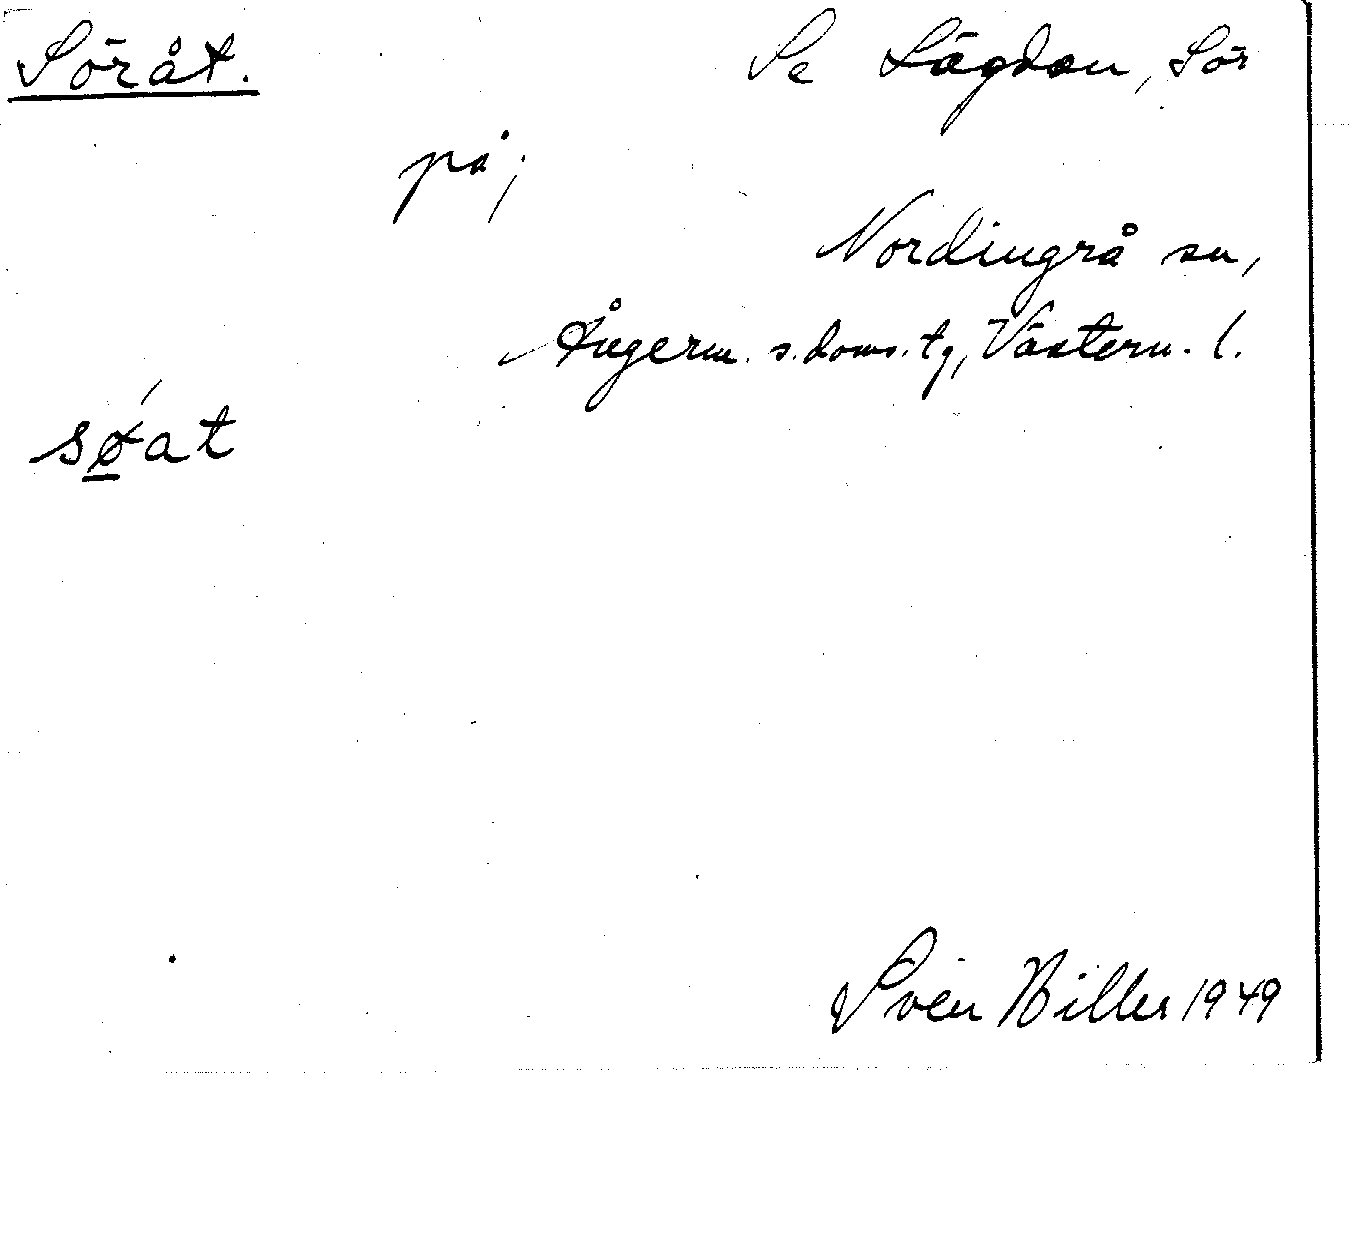 Söråt.
Se Lägdan, Sör
på;
Nordingrå sn,
Ångerm. s. doms. tg, Västern. l.
søat
Sven Hiller 1949